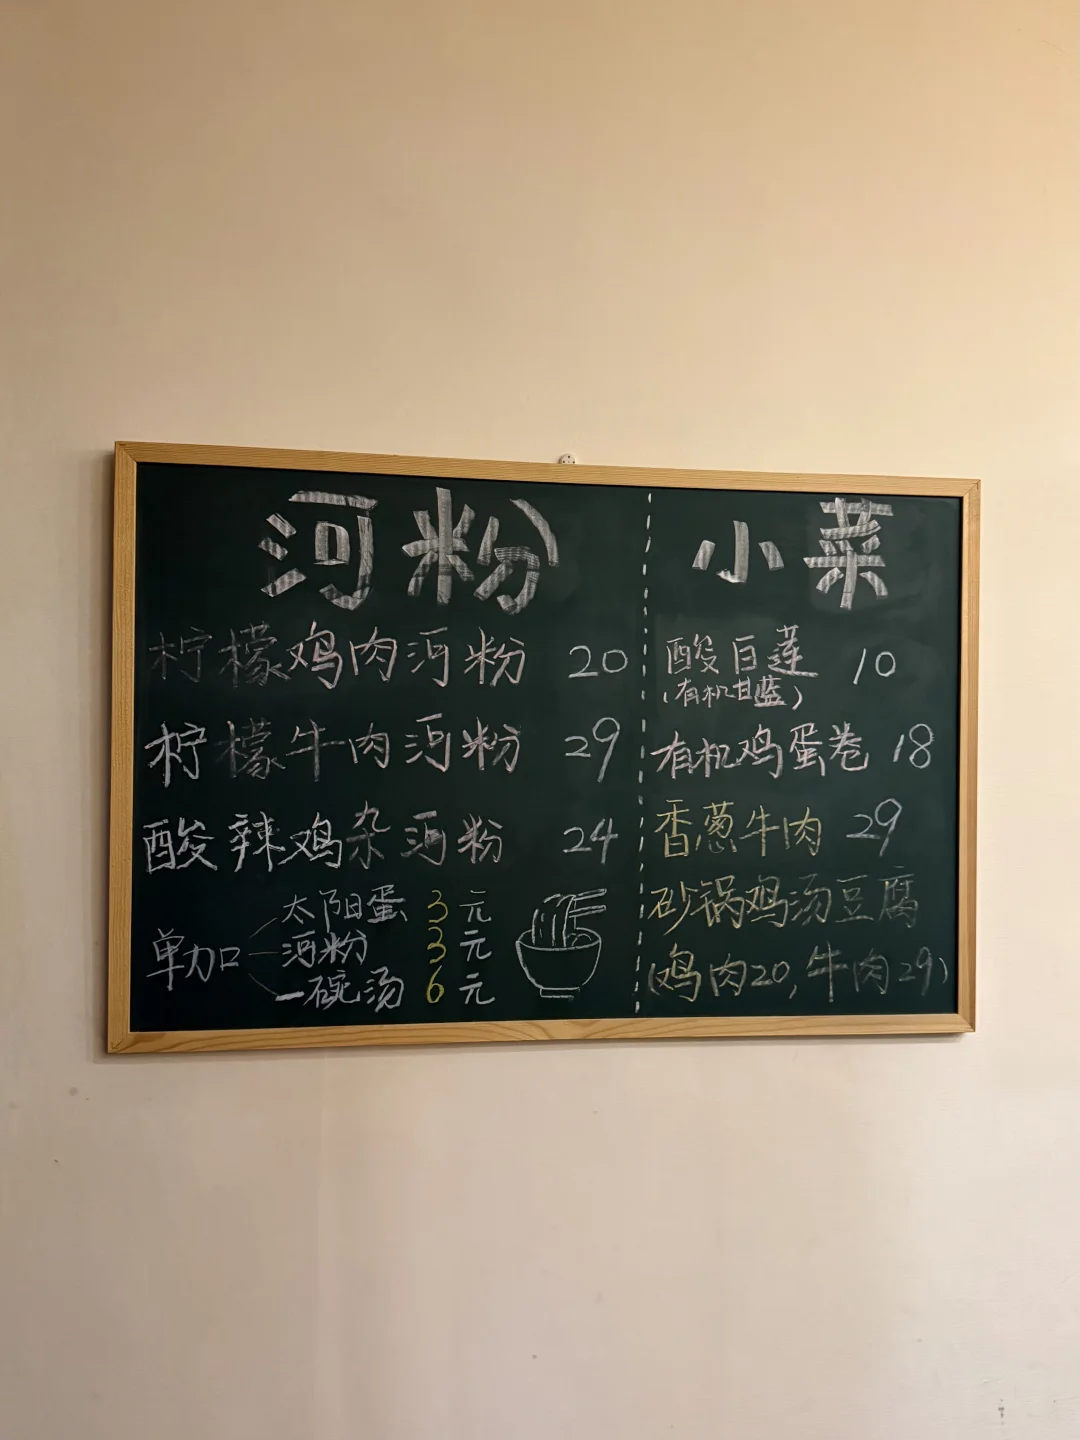 河粉
柠檬鸡肉河粉 20
柠檬牛肉河粉 29
酸辣鸡杂河粉 24
单加
太阳蛋 3元
河粉 3元
一碗汤 6元
小菜
酸白莲 10
(有机甘蓝)
有机鸡蛋卷 18
香葱牛肉 29
砂锅鸡汤豆腐
(鸡肉20,牛肉29)